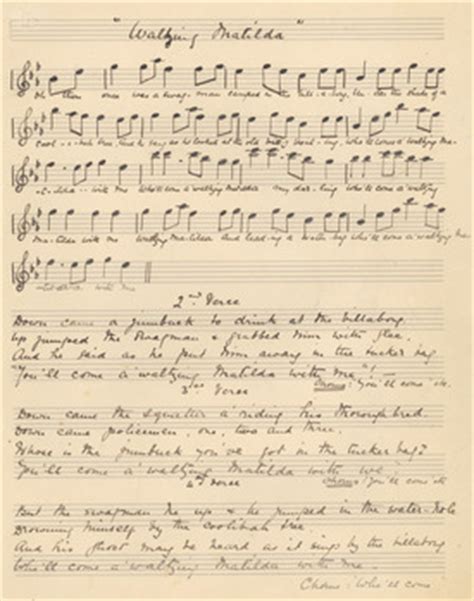 "Waltzing Matilda"
Oh there once was a swag-man camped in the bill-a-bong, under the shade of a
cool-i-bah tree, And he sang as he looked at the old billy boiling, who'll come a waltzing Ma-
-til-da with me Who'll come a waltzing Matilda my dar-ling who'll come a waltzing
Ma-tilda with me Waltzing Ma-tilda and leading a water-bag who'll come a waltzing Ma-
-tilda with me
2nd Verse
Down came a jumbuck to drink at the billabong
Up jumped the Swagman & grabbed him with glee.
And he said as he put him away in the tucker bag
"You'll come a waltzing Matilda with me"! —
Chorus: You'll come etc
3rd Verse
Down came the squatter a riding his thoroughbred.
Down came policemen, one, two and three.
Whose is the jumbuck you've got in the tucker bag?
You'll come a waltzing Matilda with we.
Chorus: You'll come etc
4th Verse
But the swagman he up & he jumped in the water-hole
Drowning himself by the coolibah tree.
And his ghost may be heard as it sings by the billabong
Who'll come a waltzing Matilda with me.
Chorus: Who'll come